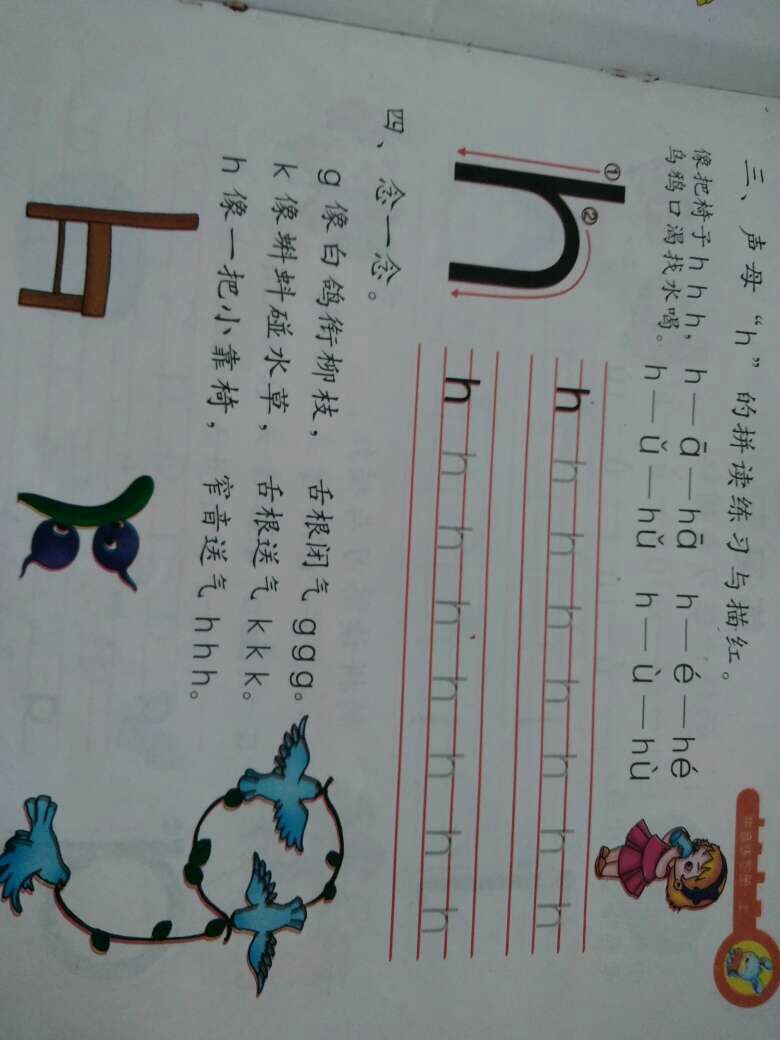 三、声母“h”的拼读练习与描红。
像把椅子hhh，
乌鸦口渴找水喝。
h—ā—hā h—é—hé
h—ǔ—hǔ h—ù—hù
①②
h
h h h h h h h h
h h h h h h h h
四、念一念。
g像白鸽衔柳枝， 舌根闭气ggg。
k像蝌蚪碰水草， 舌根送气kkk。
h像一把小靠椅， 窄音送气hhh。